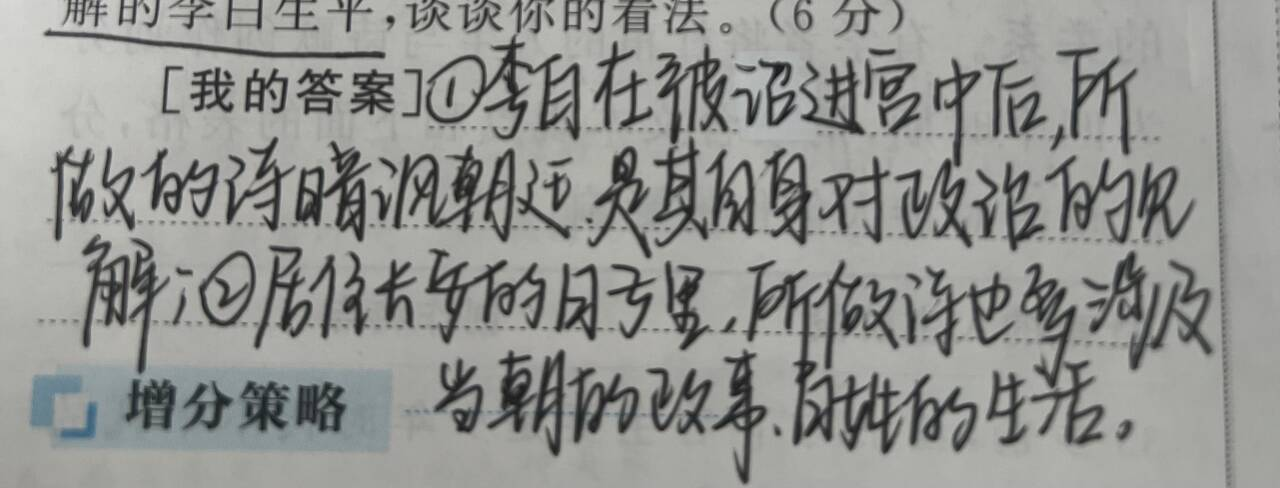 解的李白生平,谈谈你的看法。(6分)
[我的答案]①李白在被诏进宫中后,所
做的诗暗讽朝廷.是其自身对政治的见
解;②居住长安的日子里,所做诗也多涉及
增分策略 当朝的政事、百姓的生活。